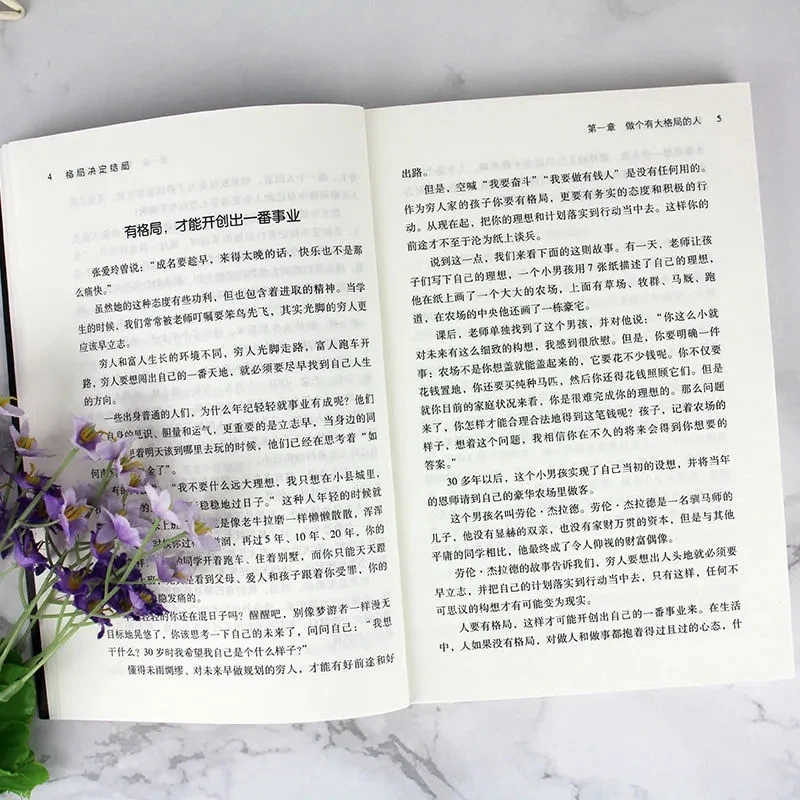 4 格局决定结局
有格局，才能开创出一番事业
张爱玲曾说：“成名要趁早，来得太晚的话，快乐也不是那
么痛快。”
虽然她的这种态度有些功利，但也包含着进取的精神。当学
生的时候，我们常常被老师叮嘱要笨鸟先飞，其实光脚的穷人更
应该早立志。
穷人和富人生长的环境不同，穷人光脚走路，富人跑车开
路，穷人要想闯出自己的一番天地，就必须要尽早找到自己人生
的方向。
一些出身普通的人们，为什么年纪轻轻就事业有成呢？他们
自身的见识、胆量和运气，更重要的是立志早，当身边的同
想着明天该到哪里去玩的时候，他们已经在思考着“如
何 金了”。
有的 “我不要什么远大理想，我只想在小县城里，
稳稳地过日子。”这种人年轻的时候就
是像老牛拉磨一样懒懒散散，浑浑
时候你过 滋润，再过 5 年、10 年、20 年，你的
同学开着跑车、住着别墅，而你只能天天蹬
上班 看到父母、爱人和孩子跟着你受罪，你的
隐隐发痛的。
轻轻的你还在混日子吗？醒醒吧，别像梦游者一样漫无
目标地晃悠了，你该思考一下自己的未来了，问问自己：“我想
干什么？30 岁时我希望我自己是个什么样子？”
懂得未雨绸缪、对未来早做规划的穷人，才能有好前途和好
第一章 做个有大格局的人 5
出路。
但是，空喊“我要奋斗”“我要做有钱人”是没有任何用的。
作为穷人家的孩子你要有格局，更要有务实的态度和积极的行
动。从现在起，把你的理想和计划落实到行动当中去。这样你的
前途才不至于沦为纸上谈兵。
说到这一点，我们来看下面的这则故事。有一天，老师让孩
子们写下自己的理想，一个小男孩用 7 张纸描述了自己的理想，
他在纸上画了一个大大的农场，上面有草场、牧群、马厩、跑
道，在农场的中央他还画了一栋豪宅。
课后，老师单独找到了这个男孩，并对他说：“你这么小就
对未来有这么细致的构想，我感到很欣慰。但是，你要明确一件
事：农场不是你想盖就能盖起来的，它要花不少钱呢。你不仅要
花钱置地，你还要买纯种马匹，然后你还得花钱照顾它们。但是
就你目前的家庭状况来看，你是很难完成你的理想的。那么问题
来了，你怎样才能合理合法地得到这笔钱呢？孩子，记着农场的
样子，想着这个问题，我相信你在不久的将来会得到你想要的
答案。”
30 多年以后，这个小男孩实现了自己当初的设想，并将当年
的恩师请到自己的豪华农场里做客。
这个男孩名叫劳伦·杰拉德。劳伦·杰拉德是一名驯马师的
儿子，他没有显赫的双亲，也没有家财万贯的资本，但是与其他
平庸的同学相比，他最终成了令人仰视的财富偶像。
劳伦·杰拉德的故事告诉我们，穷人要想出人头地就必须要
早立志，并把自己的计划落实到行动当中去，只有这样，任何不
可思议的构想才有可能变为现实。
人要有格局，这样才可能开创出自己的一番事业来。在生活
中，人如果没有格局，对做人和做事都抱着得过且过的心态，什